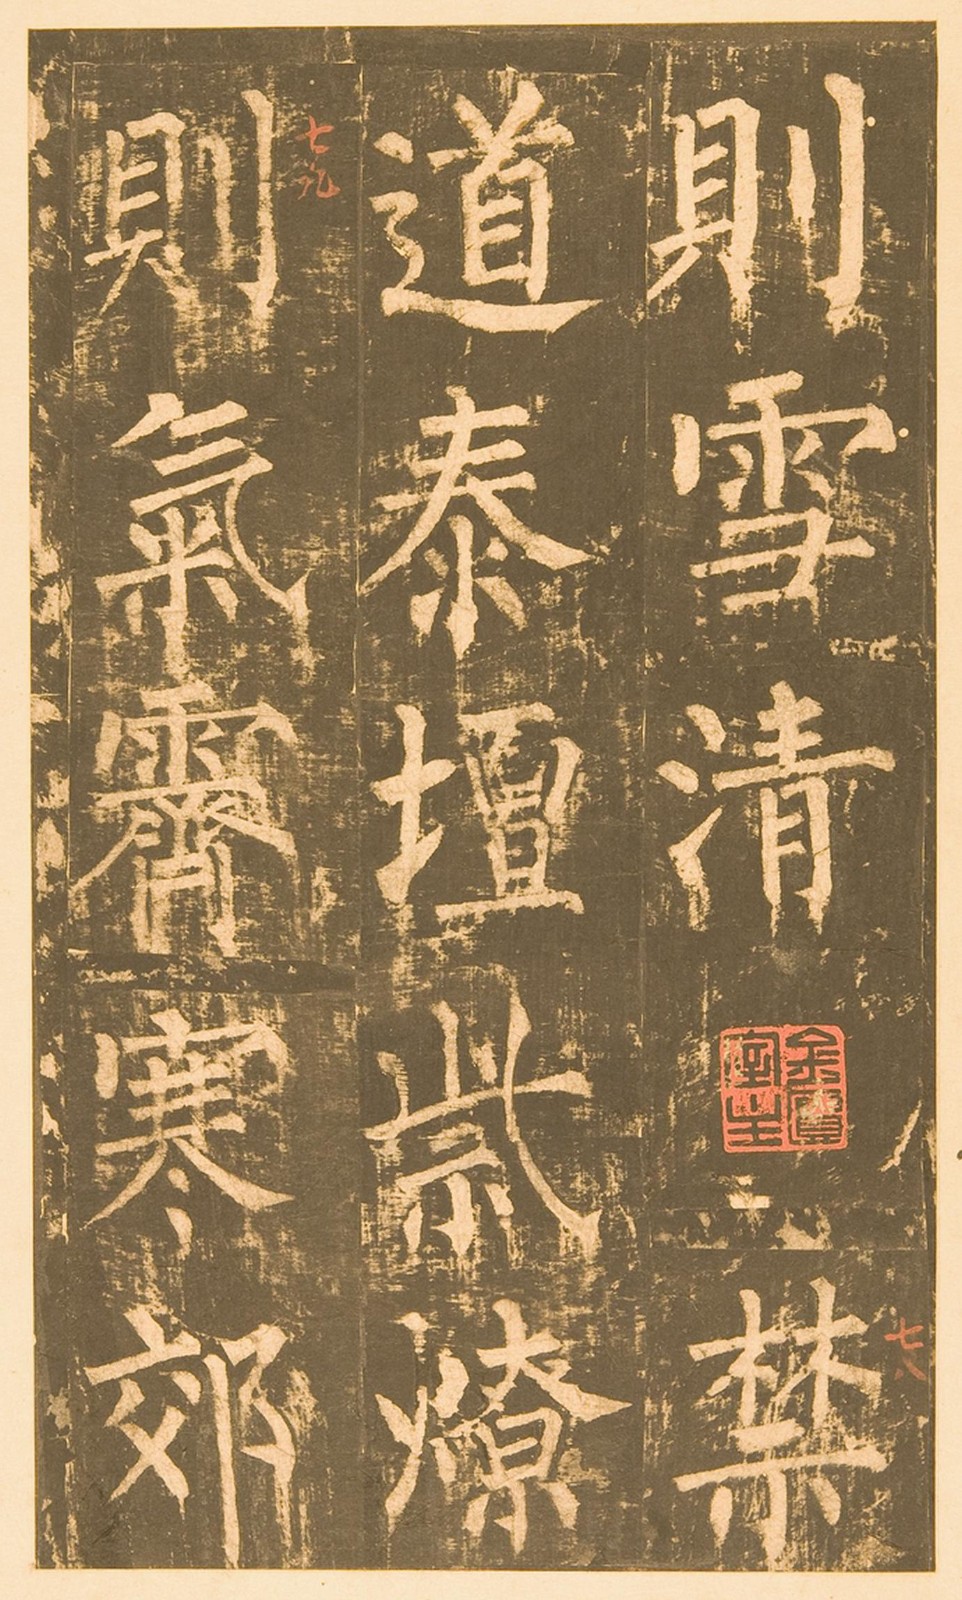 則雪清禁
道泰壇祡燎
則氣霽寒郊
七八
七九